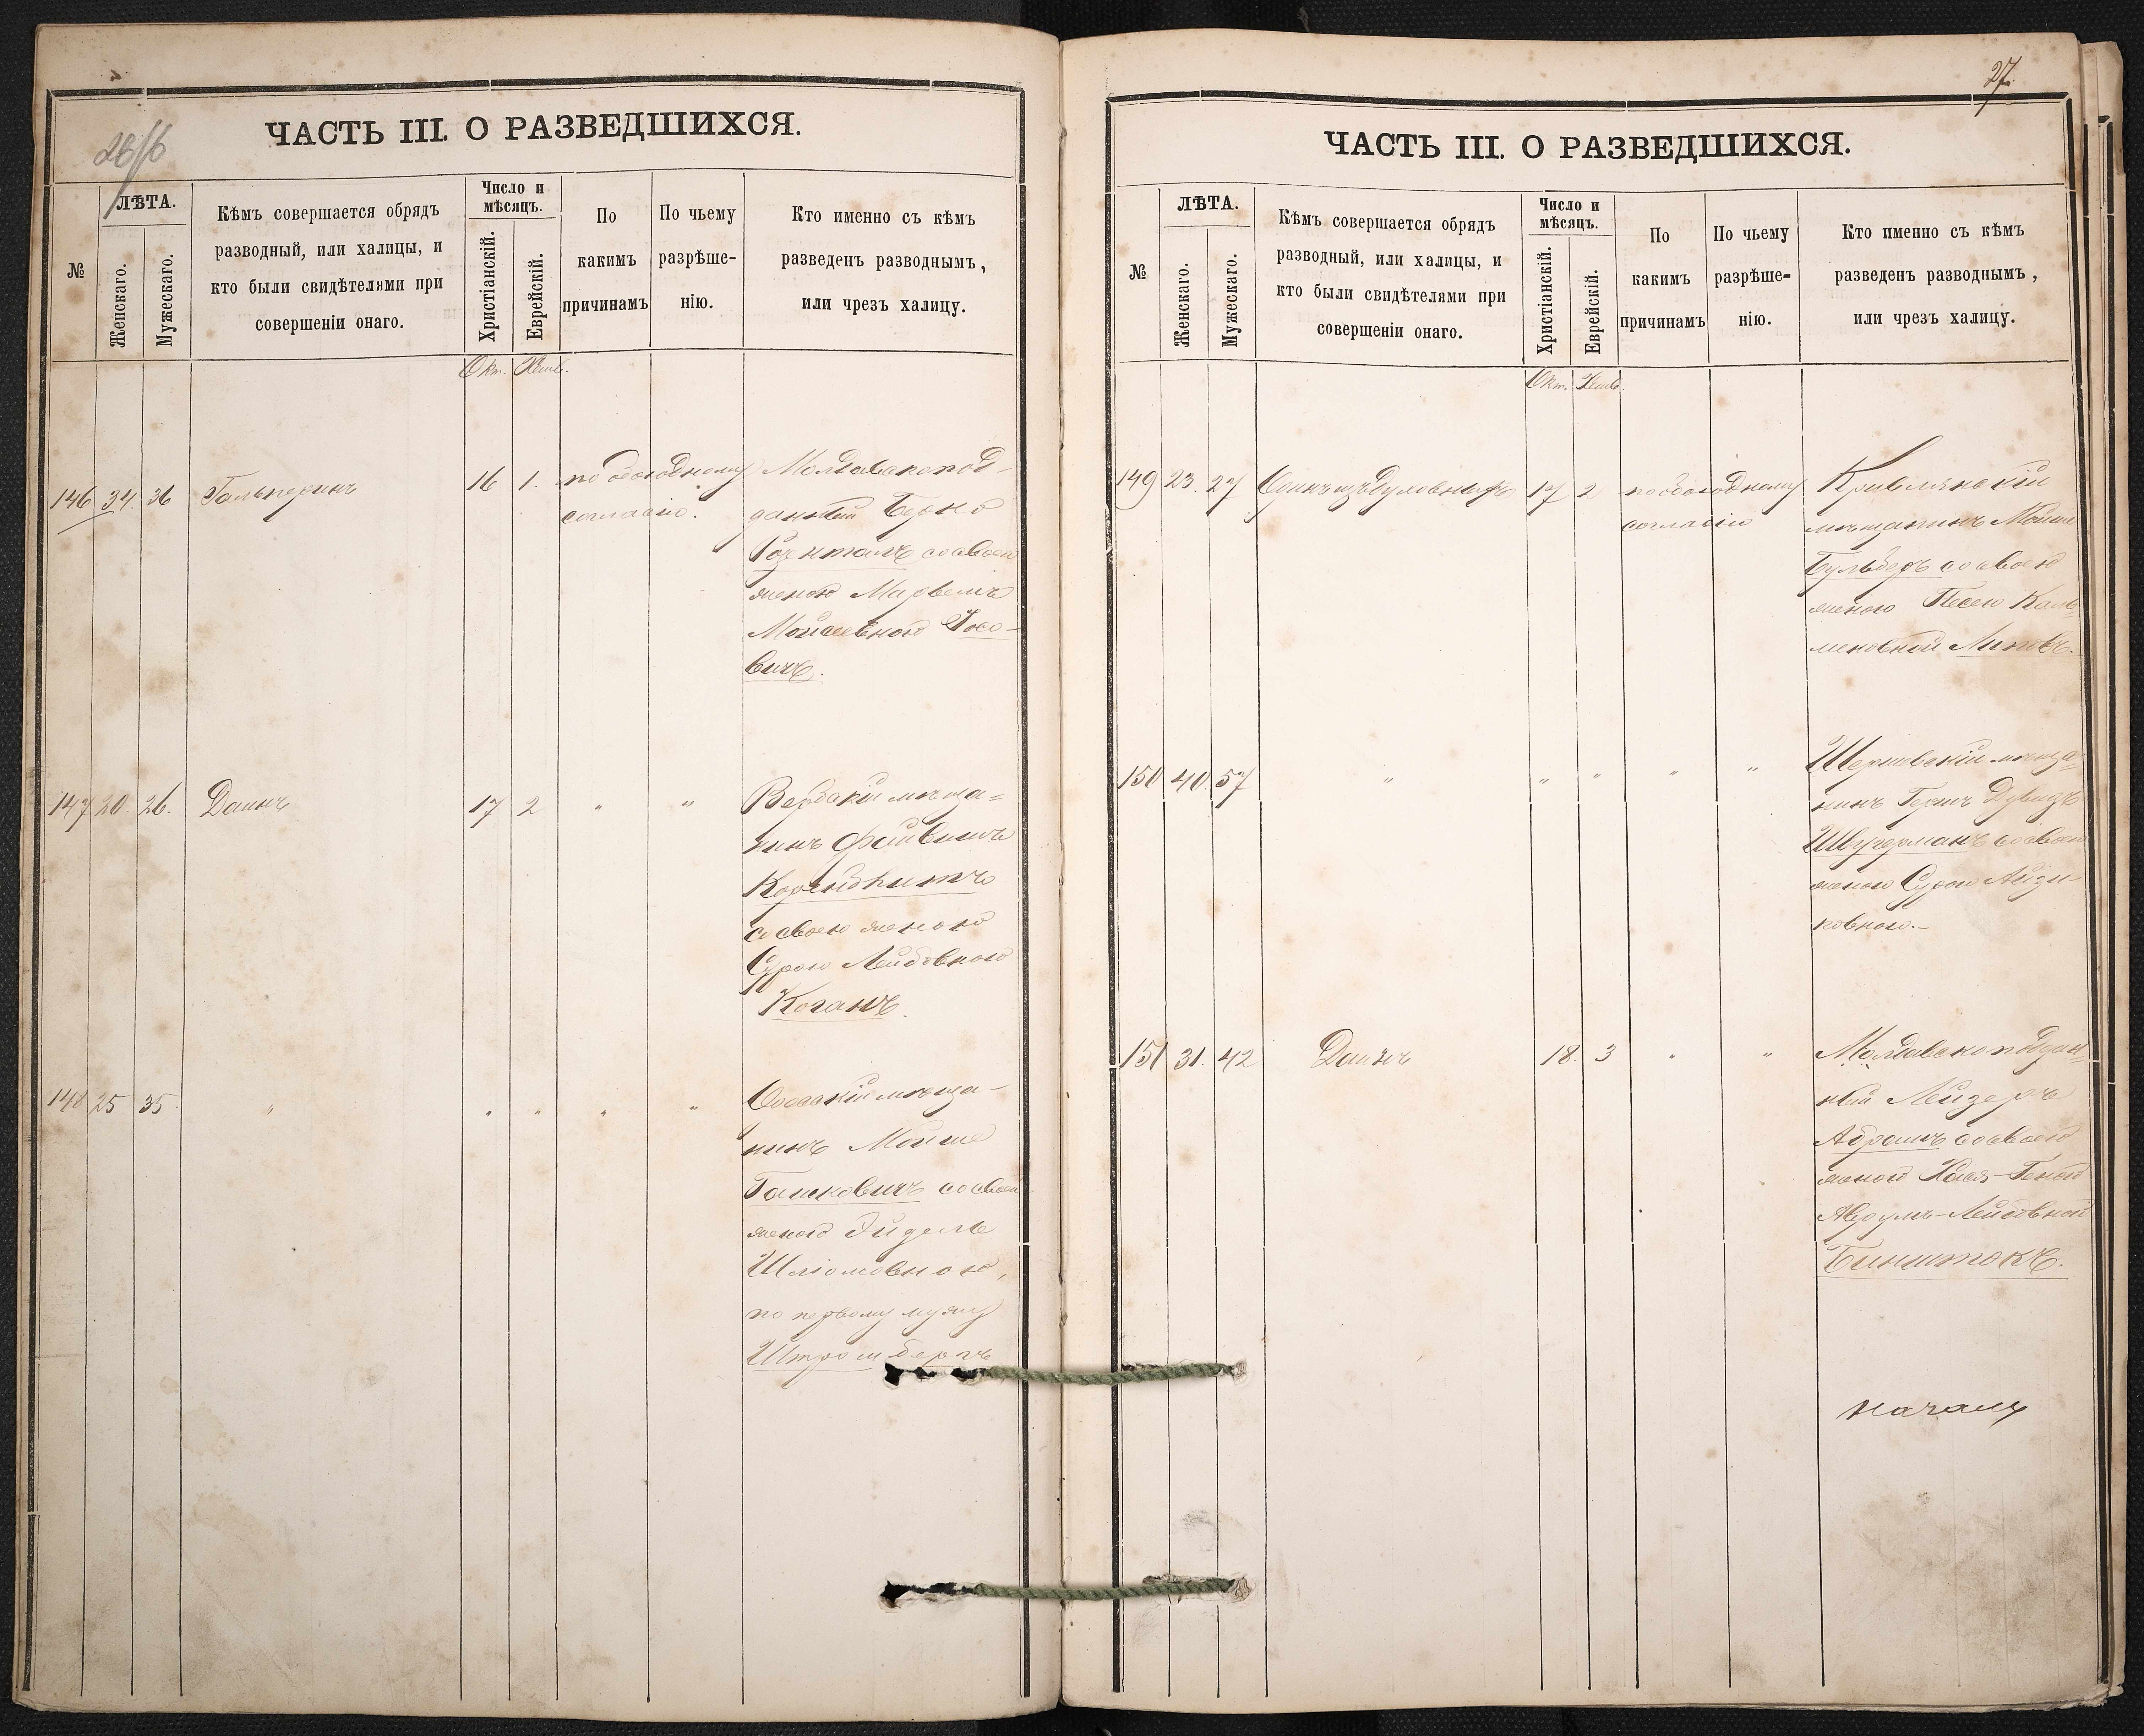 26/б
ЧАСТЬ III. О РАЗВЕДШИХСЯ.
№
ЛѢТА.
Женскаго.
Мужескаго.
Кѣмъ совершается обрядъ
разводный, или халицы, и
кто были свидѣтелями при
совершеніи онаго.
Число и
мѣсяцъ.
Христіанскій.
Еврейскій.
По
какимъ
причинамъ
По чьему
разрѣше-
нію.
Кто именно съ кѣмъ
разведенъ разводнымъ,
или чрезъ халицу.
Окт. Хешв.
146 34. 36 Гальперинъ 16 1. по обоюдному
согласію.
Молдавскопод-
данный Берко
Розенталъ со своей
женою Марвемъ
Мойсеевною
147 20 26. Даинъ 17 2 " "
мѣща-
нинъ Файвишъ
Корнблитъ
со своею женою
Сурою Лейбовною
Коганъ.
148 25 35. " " " " "
Одесскій мѣща-
нинъ Мойше
Гашковичъ со своей
женою Эйдель
Шліомовною,
по первому мужу
Штромбергъ
27.
ЧАСТЬ III. О РАЗВЕДШИХСЯ.
№
ЛѢТА.
Женскаго.
Мужескаго.
Кѣмъ совершается обрядъ
разводный, или халицы, и
кто были свидѣтелями при
совершеніи онаго.
Число и
мѣсяцъ.
Христіанскій.
Еврейскій.
По
какимъ
причинамъ
По чьему
разрѣше-
нію.
Кто именно съ кѣмъ
разведенъ разводнымъ,
или чрезъ халицу.
Окт. Хешв.
149 23. 27 Одинъ изъ духовныхъ 17 2 по обоюдному
согласію
мѣщанинъ Мойше
Бульберъ со своею
женою Песею Каль-
меновной Липовъ.
150 40. 57 " " " " "
мѣща-
нинъ Герш Дувидъ
Швугерманъ со своей
женою Сурою Айзи-
ковною.-
151 31. 42 Даинъ 18. 3 " "
Молдавскоподдан-
ный Лейзеръ
Абрамъ со своей
женою Хая-Геней
Лейбовной
Бинштокъ.